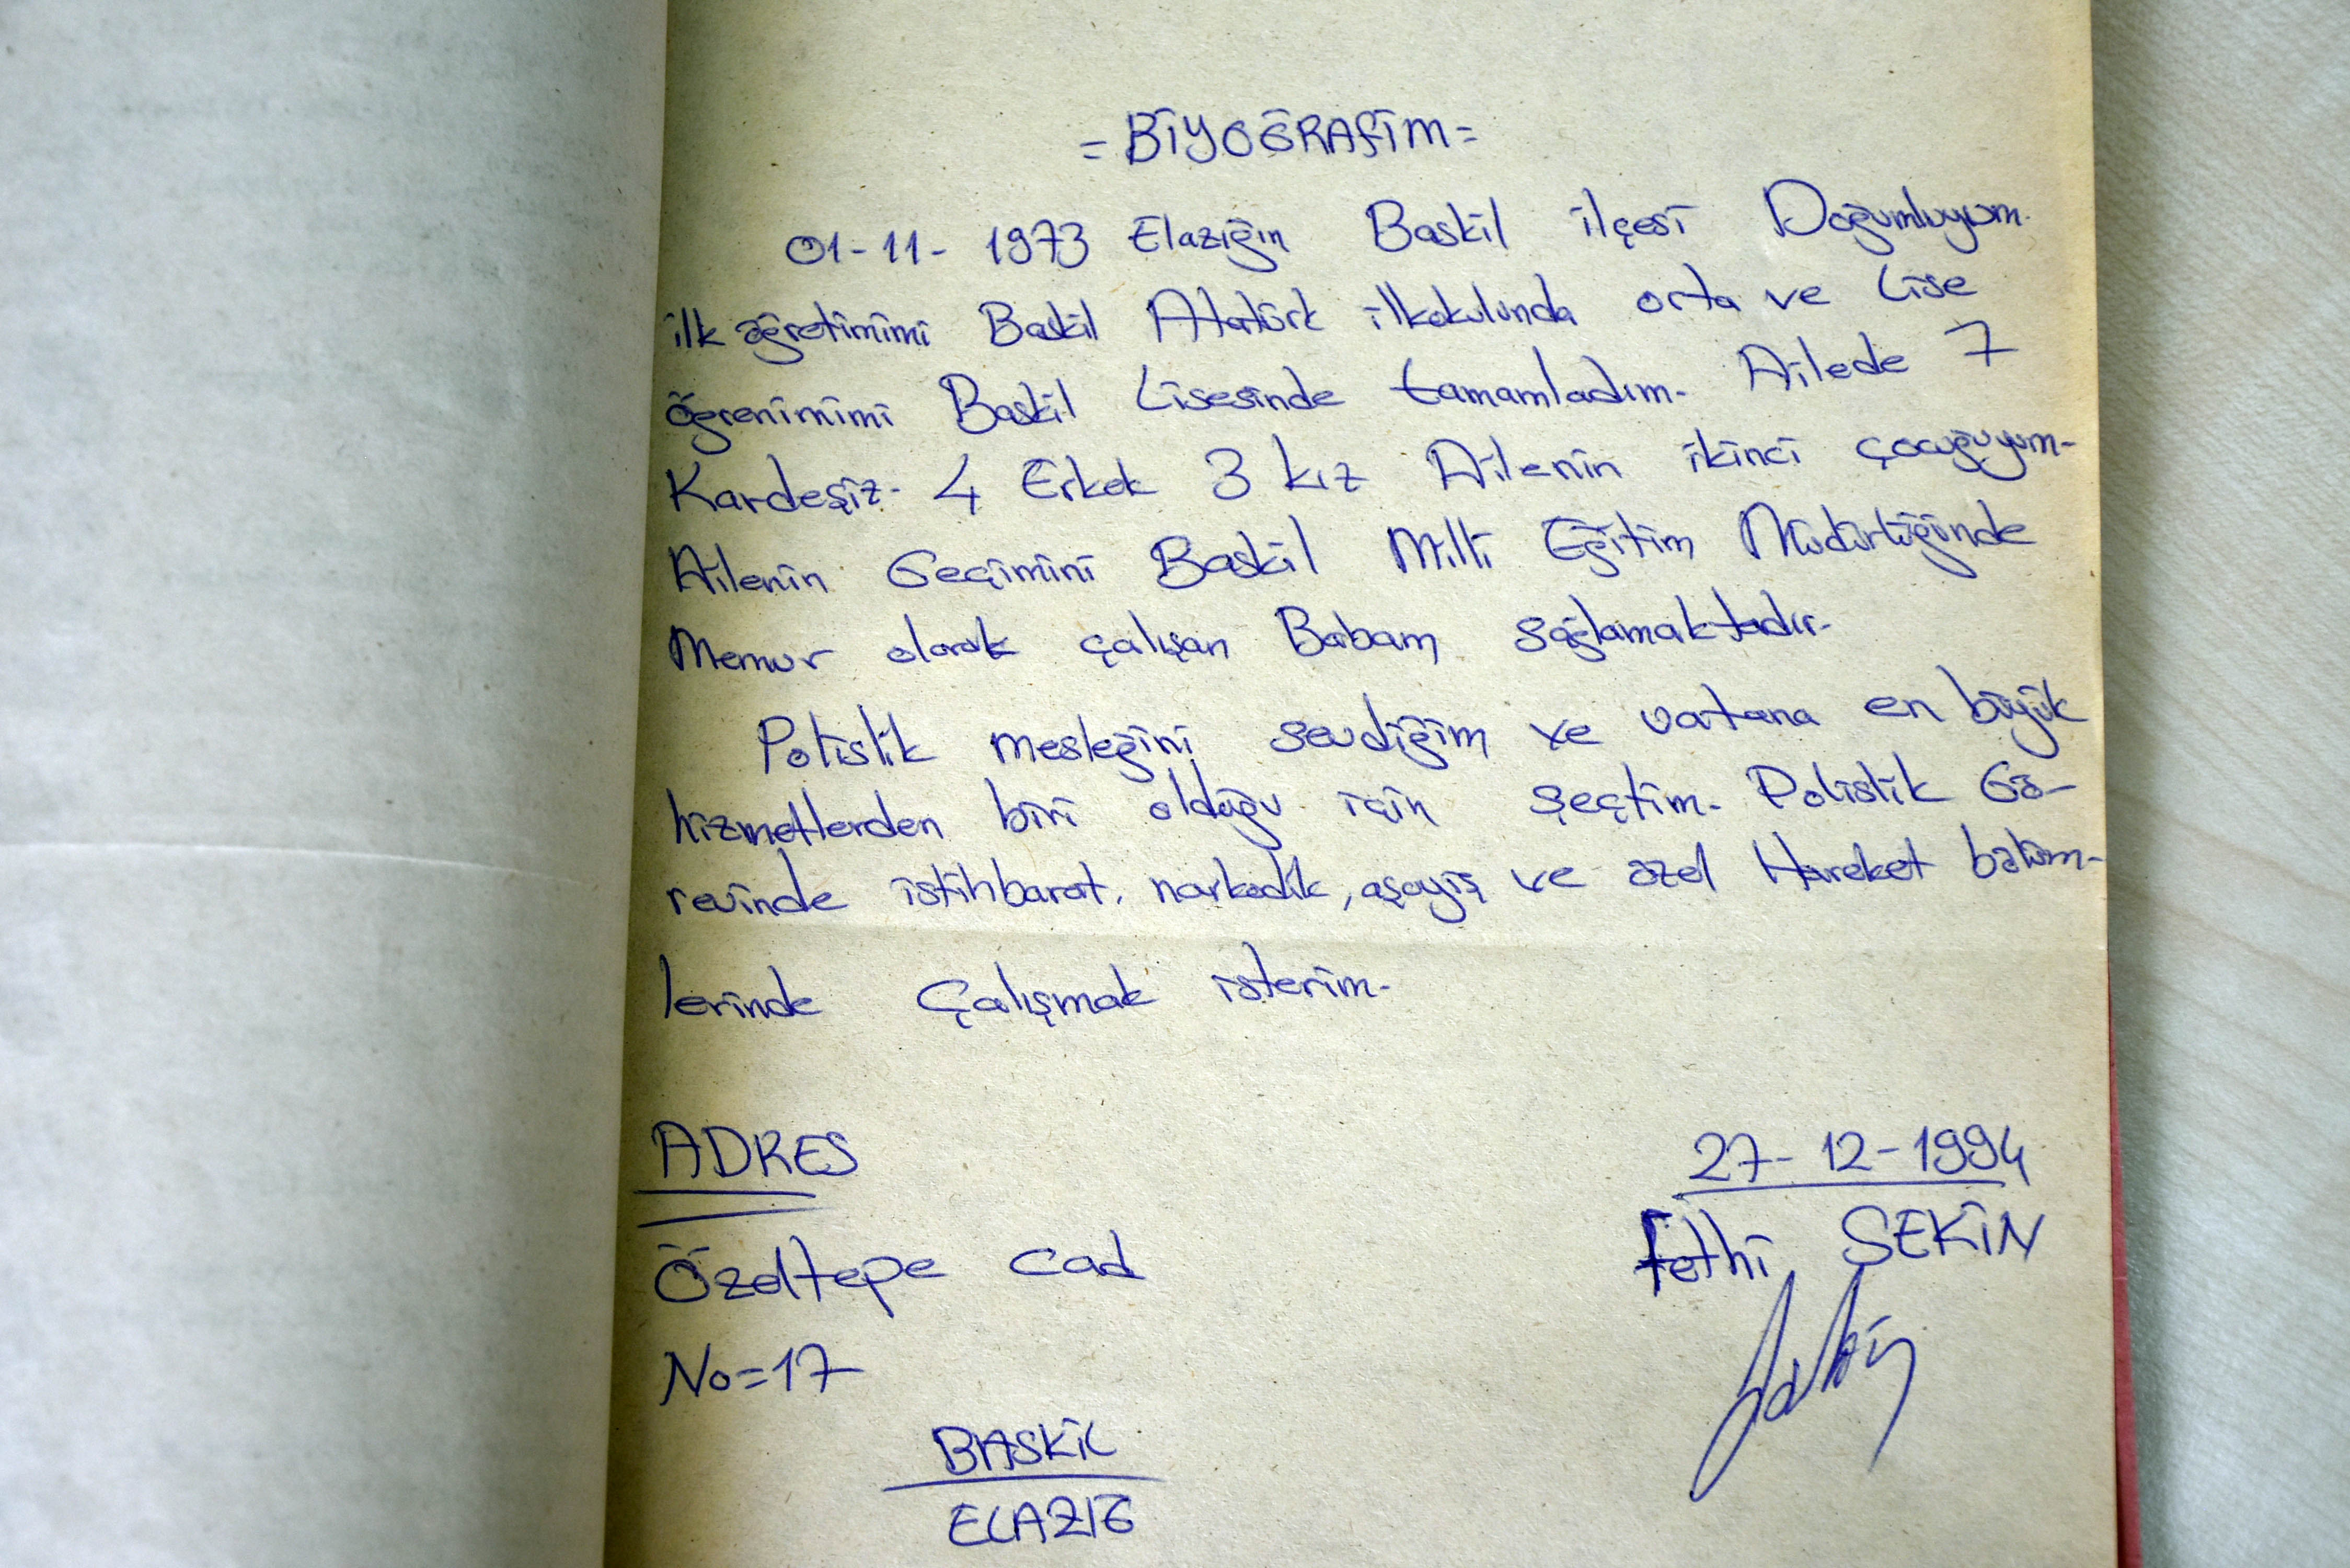 = BİYOĞRAFİM =
01-11-1973 Elazığın Baskil ilçesi Doğumluyum.
ilk öğretimimi Baskil Atatürk ilkokulunda orta ve Lise
öğrenimimi Baskil Lisesinde tamamladım. Ailede 7
Kardeşiz. 4 Erkek 3 kız Ailenin ikinci çocuğuyum.
Ailenin Geçimini Baskil Milli Eğitim Müdürlüğünde
Memur olarak çalışan Babam sağlamaktadır.
Polislik mesleğini sevdiğim ve vatana en büyük
hizmetlerden biri olduğu için seçtim. Polislik Gö-
revinde istihbarat, narkodik, asayiş ve özel Hareket bölüm-
lerinde Çalışmak isterim.
ADRES
27-12-1994
Fethi SEKİN
Özeltepe Cad
No=17
BASKİL
ELAZIĞ